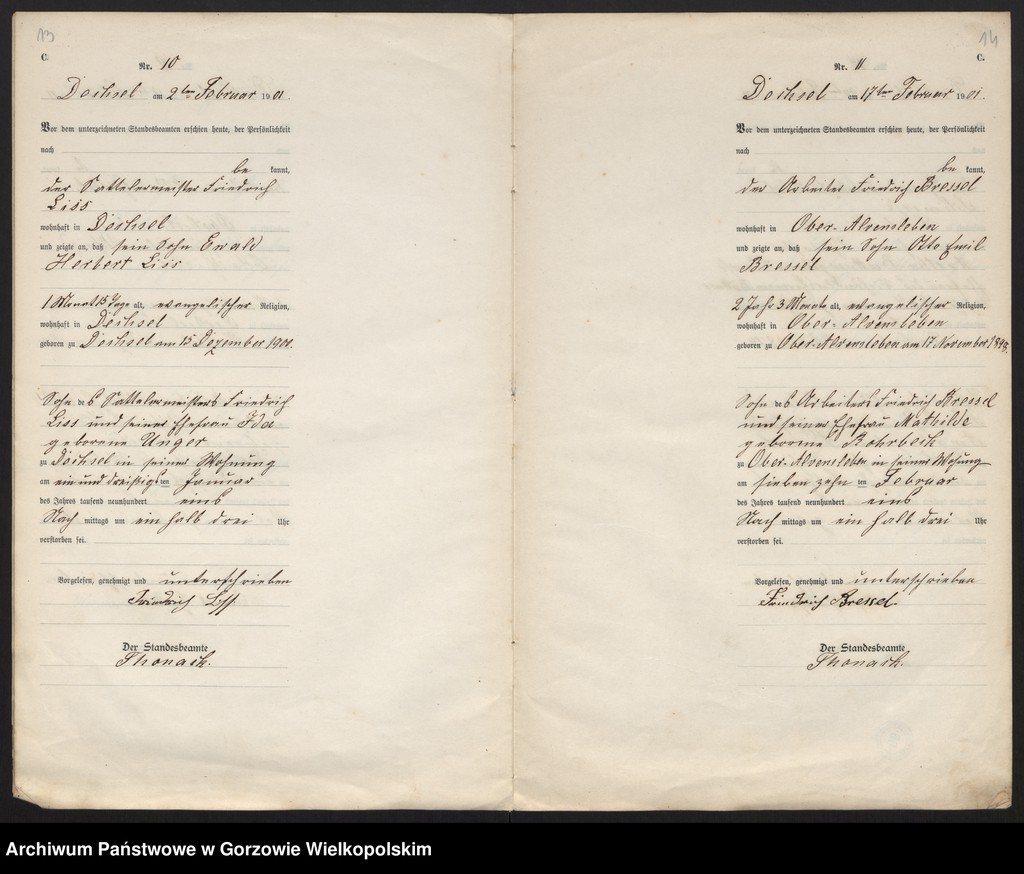 13
C.
Nr. 10
Dechsel am 2ten Februar 1901.
Vor dem unterzeichneten Standesbeamten erschien heute, der Persönlichkeit
nach
be kannt,
der Sattelermeister Friedrich
Liss
wohnhaft in Dechsel
und zeigte an, daß sein Sohn Ewald
Herbert Liss
1 Monat 15 Tage alt, evangelischer Religion,
wohnhaft in Dechsel
geboren zu Dechsel am 15 Dezember 1900.
Sohn des Sattelermeisters Friedrich
Liss und seiner Ehefrau Ida
geborene Unger
zu Dechsel in seiner Wohnung
am ein und dreißigsten Januar
des Jahres tausend neunhundert eins
Nach mittags um ein halb drei Uhr
verstorben sei.
Vorgelesen, genehmigt und unterschrieben
Friedrich Liss
Der Standesbeamte
Thonack.
14
C.
Nr. 11
Dechsel am 17ten Februar 1901.
Vor dem unterzeichneten Standesbeamten erschien heute, der Persönlichkeit
nach
be kannt,
der Arbeiter Friedrich Bressel
wohnhaft in Ober-Alvensleben
und zeigte an, daß sein Sohn Otto Emil
Bressel
2 Jahr 3 Monate alt, evangelischer Religion,
wohnhaft in Ober-Alvensleben
geboren zu Ober-Alvensleben am 17 November 1898,
Sohn des Arbeiters Friedrich Bressel
und seiner Ehefrau Mathilde
geborene Rohrbeck
zu Ober-Alvensleben in seiner Wohnung
am sieben zehn ten Februar
des Jahres tausend neunhundert eins
Nach mittags um ein halb drei Uhr
verstorben sei.
Vorgelesen, genehmigt und unterschrieben
Friedrich Bressel.
Der Standesbeamte
Thonack.
Archiwum Państwowe w Gorzowie Wielkopolskim